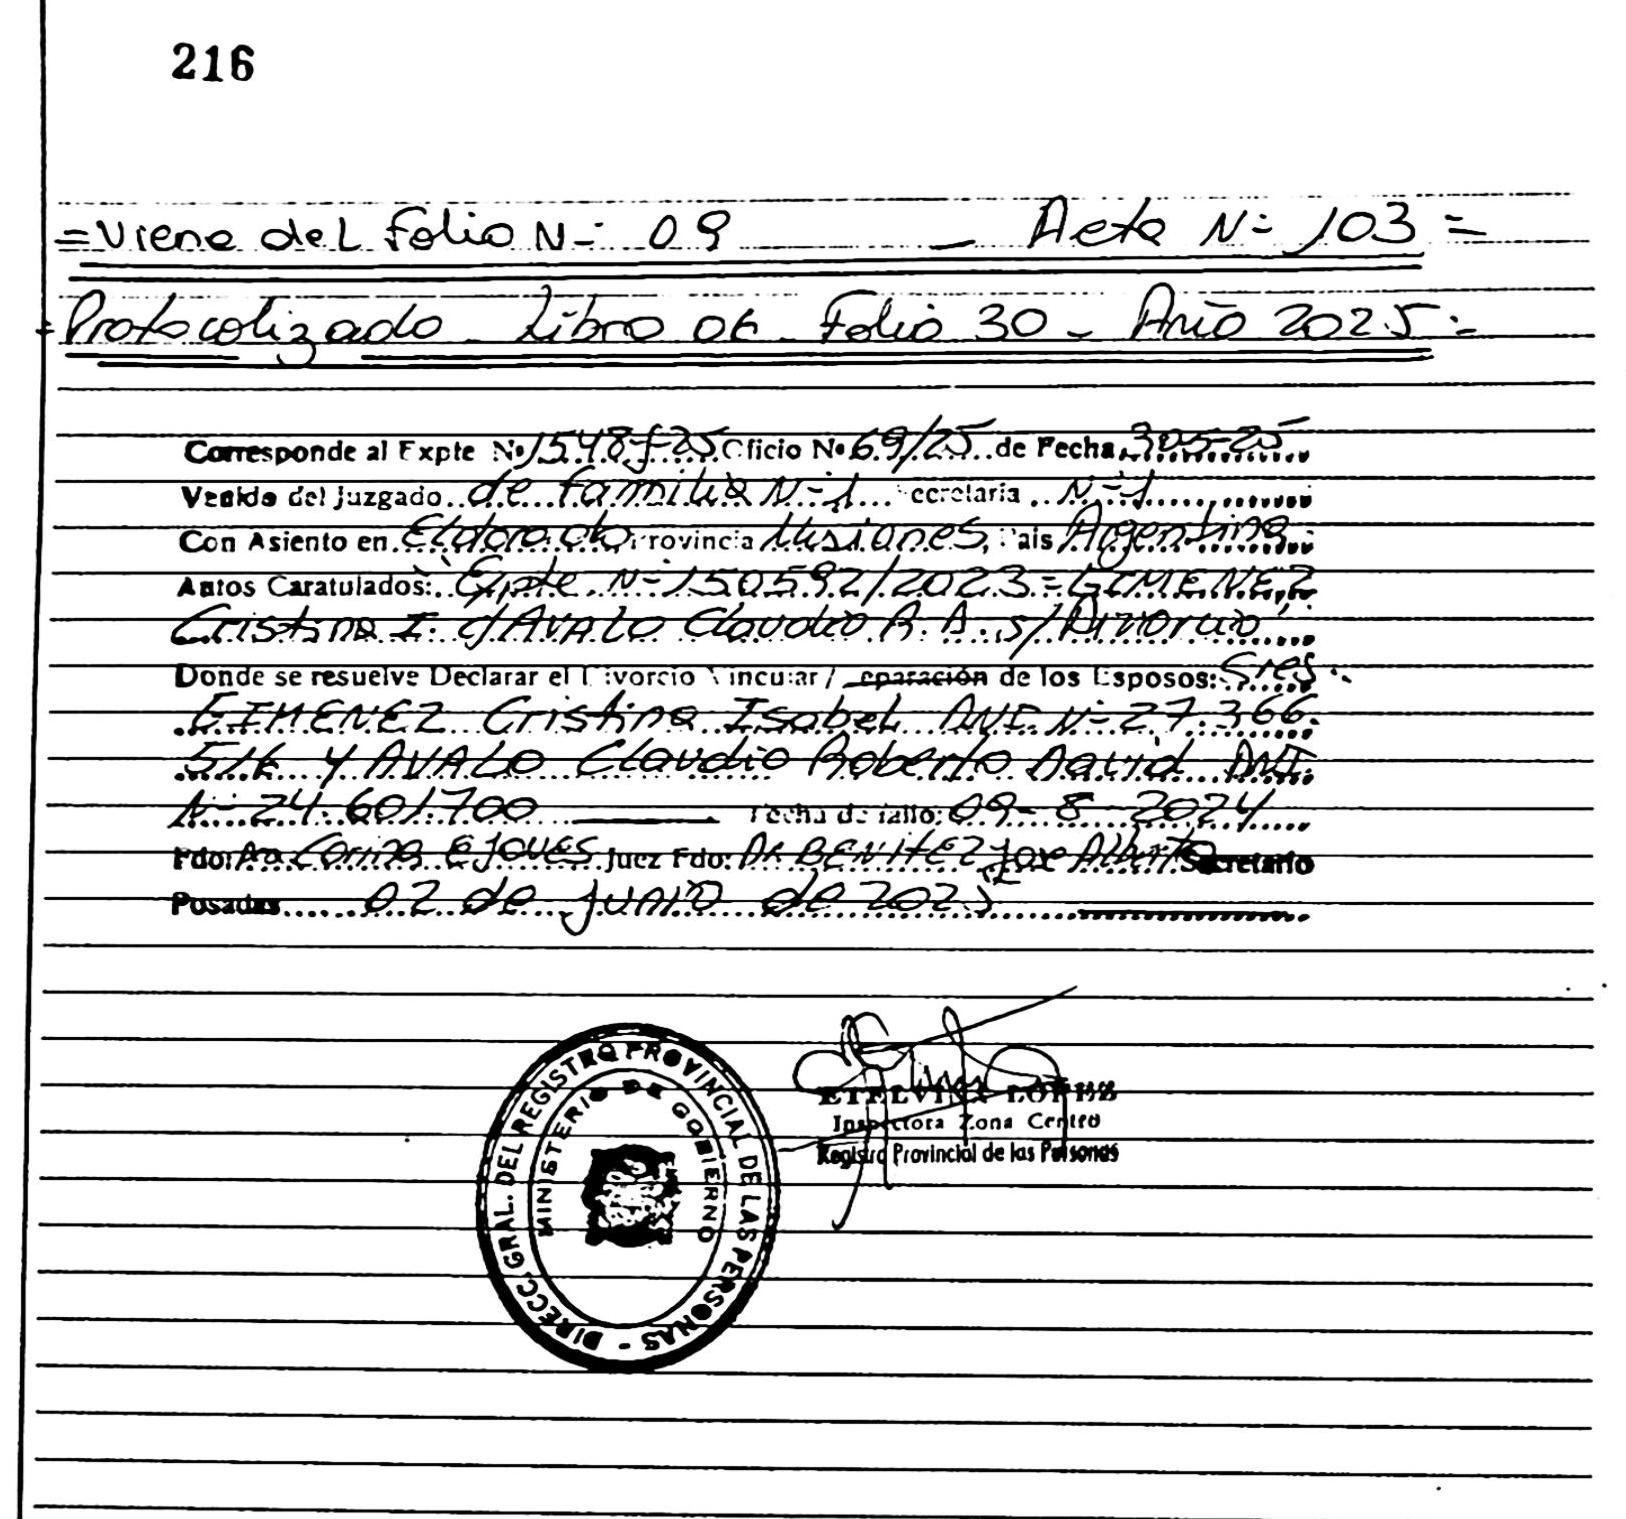 216
=Viene del Folio N-: 09 _ Acta N-: 103=
=Protocolizado - Libro 06 - Folio 30 - Año 2025=
Corresponde al Expte Nº 1548-f-25 Oficio Nº 69/25 de Fecha 30-5-25
Venido del Juzgado de Familia N-: 1 Secretaria N-: 1
Con Asiento en Eldorado, Provincia Misiones, Pais Argentina
Autos Caratulados: "Expte N-: 150592/2023=GIMENEZ
Cristina I. c/ AVALO Claudio R. D. s/ Divorcio"
Donde se resuelve Declarar el Divorcio Vincular / Separación de los Esposos: Sres.
GIMENEZ Cristina Isabel DNI. N-: 27.366.
516 y AVALO Claudio Roberto David DNI.
N-: 24.601.700 Fecha de fallo: 09-8-2024
Fdo: Dra. Corina E JOVES Juez Fdo: Dr. BENITEZ Jose Alberto Secretario
Posadas 02 de Junio de 2025
DIRECC. GRAL. DEL REGISTRO PROVINCIAL DE LAS PERSONAS -
MINISTERIO DE GOBIERNO
ETELVINA LOPEZ
Inspectora Zona Centro
Registro Provincial de las Personas